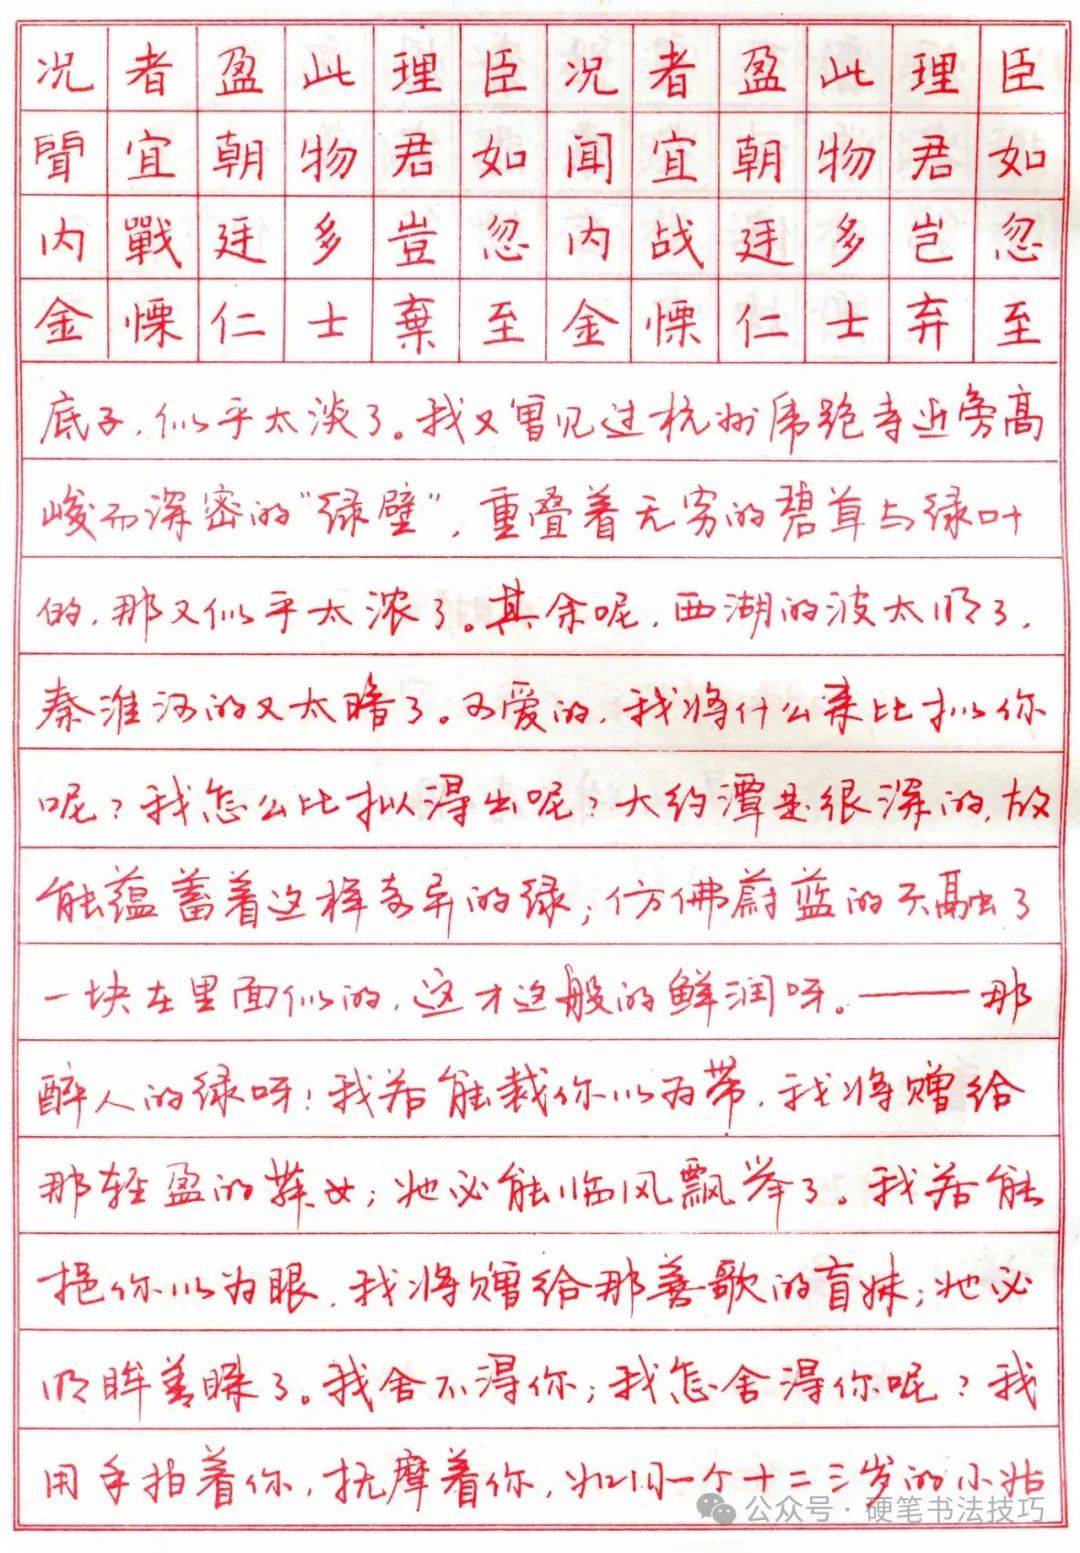 况者盈此理臣况者盈此理臣
聞宜朝物君如闻宜朝物君如
内戰廷多豈忽内战廷多岂忽
金慄仁士棄至金慄仁士弃至
底子，似乎太淡了。我又曾见过杭州虎跑寺近旁高
峻而深密的“绿壁”，重叠着无穷的碧草与绿叶
的，那又似乎太浓了。其余呢，西湖的波太明了，
秦淮河的又太暗了。可爱的，我将什么来比拟你
呢？我怎么比拟得出呢？大约潭是很深的，故
能蕴蓄着这样奇异的绿；仿佛蔚蓝的天融了
一块在里面似的，这才这般的鲜润呀。——那
醉人的绿呀！我若能裁你以为带，我将赠给
那轻盈的舞女；她必能临风飘举了。我若能
挹你以为眼，我将赠给那善歌的盲妹；她必
明眸善睐了。我舍不得你；我怎舍得你呢？我
用手拍着你，抚摩着你，如同一个十二三岁的小姑
公众号·硬笔书法技巧